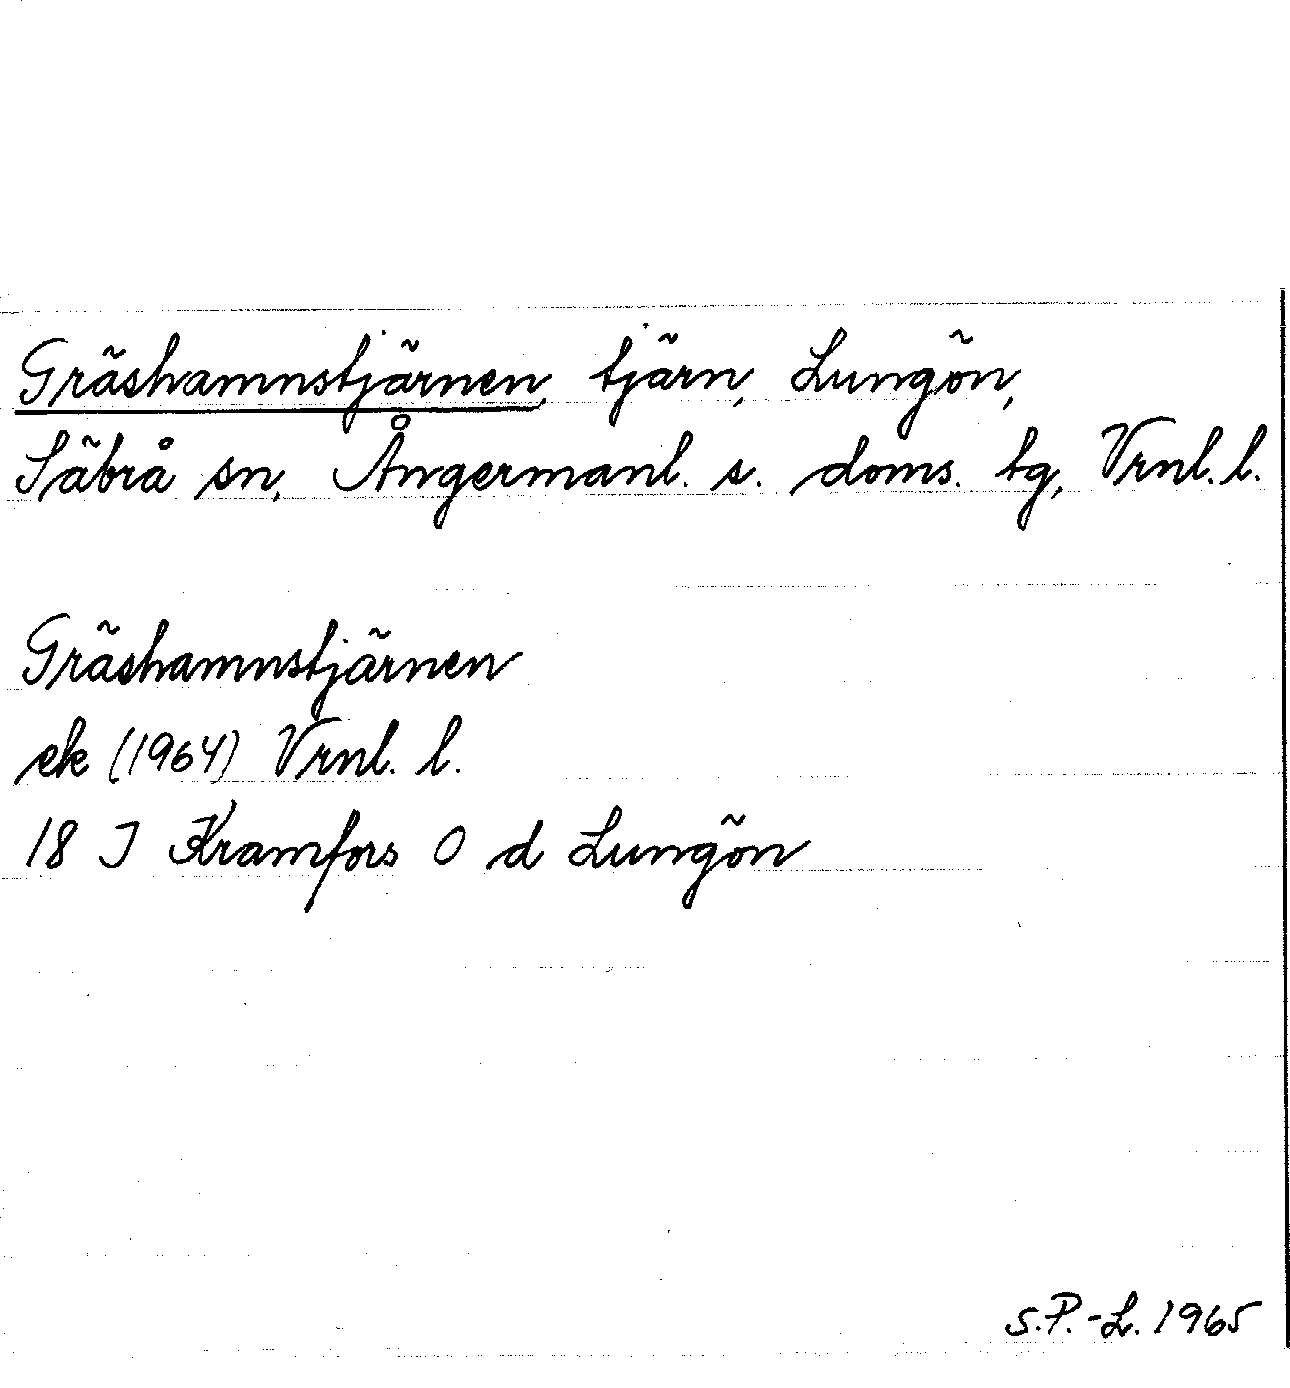 Gräshamnstjärnen, tjärn, Lungön,
Säbrå sn, Ångermanl. s. doms. tg, Vrnl. l.
Gräshamnstjärnen
ek (1964) Vrnl. l.
18 J Kramfors O d Lungön
S.P.-L. 1965